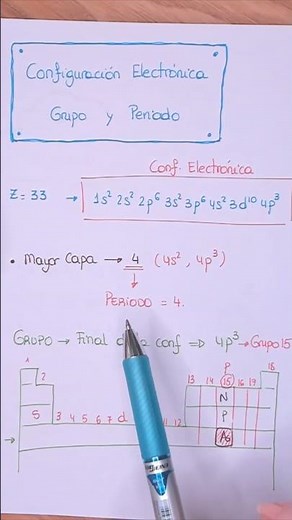 Configuración Electrónica
Grupo y Periodo
Conf. Electrónica
Z = 33 → 1s² 2s² 2p⁶ 3s² 3p⁶ 4s² 3d¹⁰ 4p³
• Mayor Capa → 4 (4s², 4p³)
↓
PERIODO = 4.
GRUPO → Final de la conf ⇒ 4p³ → Grupo 15
1 2 P 18
13 14 15 16 19
N
S 3 4 5 6 7 d 11 12 P
→ As